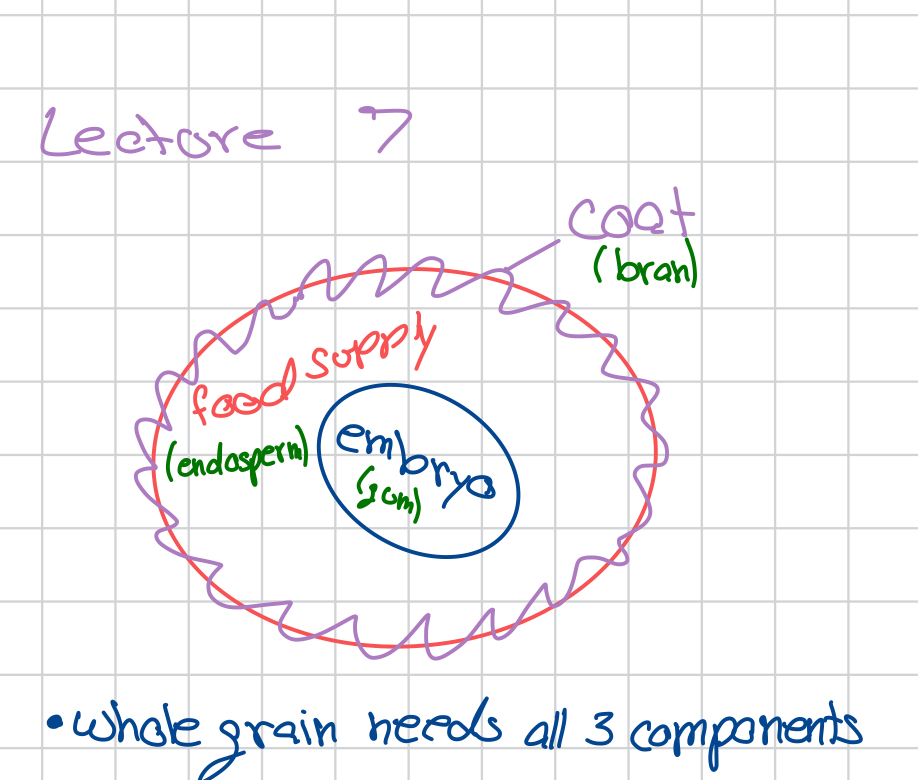 Lecture 7
coat
(bran)
food supply
(endosperm)
embryo
(germ)
• whole grain needs all 3 components